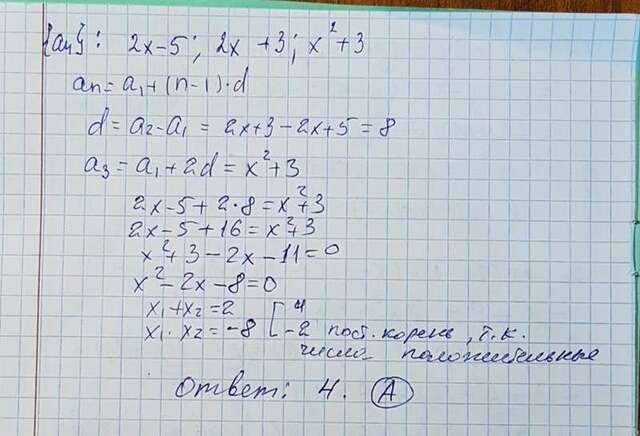 {an}: 2x-5; 2x+3; x²+3
an=a₁+(n-1)·d
d=a₂-a₁=2x+3-2x+5=8
a₃=a₁+2d=x²+3
2x-5+2·8=x²+3
2x-5+16=x²+3
x²+3-2x-11=0
x²-2x-8=0
x₁+x₂=2 [4
x₁·x₂=-8 [-2 пост. корень, т.к.
числа положительные
Ответ: 4. A